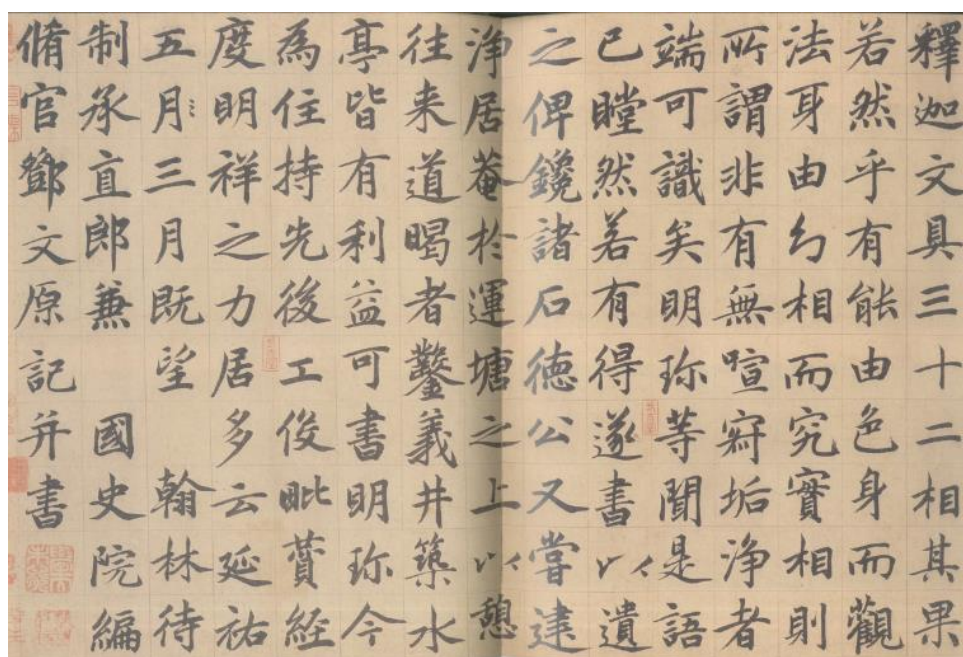 釋迦文具三十二相其果
若然乎有能由色身而觀
法身由幻相而究實相則
所謂非有無喧寂垢浄者
端可識矣明珎等聞是語
已瞠然若有得遂書以遺
之俾鑱諸石徳公又嘗建
浄居菴於運塘之上以憩
往来道暍者鑿義井築水
亭皆有利益可書明珎今
為住持先後工俊毗賛経
度明祥之力居多云延祐
五月三月既望 翰林待
制承直郎兼 國史院編
脩官鄧文原記并書